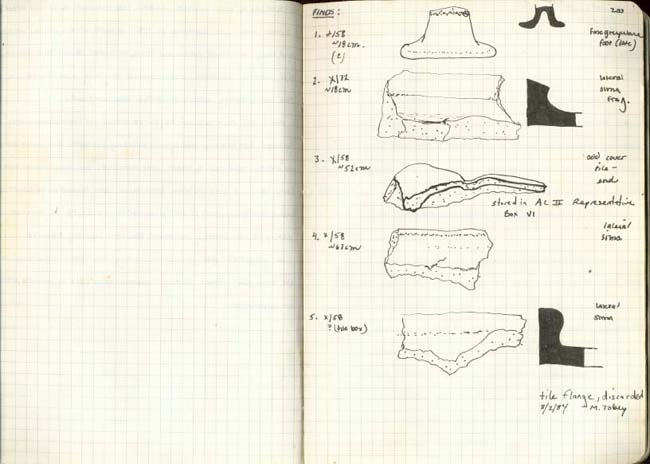 FINDS:
203
1. x/58
~18cm.
(2)
Fine greyware
foot (base)
2. x/32
~18cm
lateral
sima
frag.
3. x/58
~52cm
odd cover
tile -
end
stored in AC II Representitive
Box VI
4. x/58
~63cm
lateral
sima
5. x/58
? (tile box)
lateral
sima
tile flange, discarded
M. Tobey